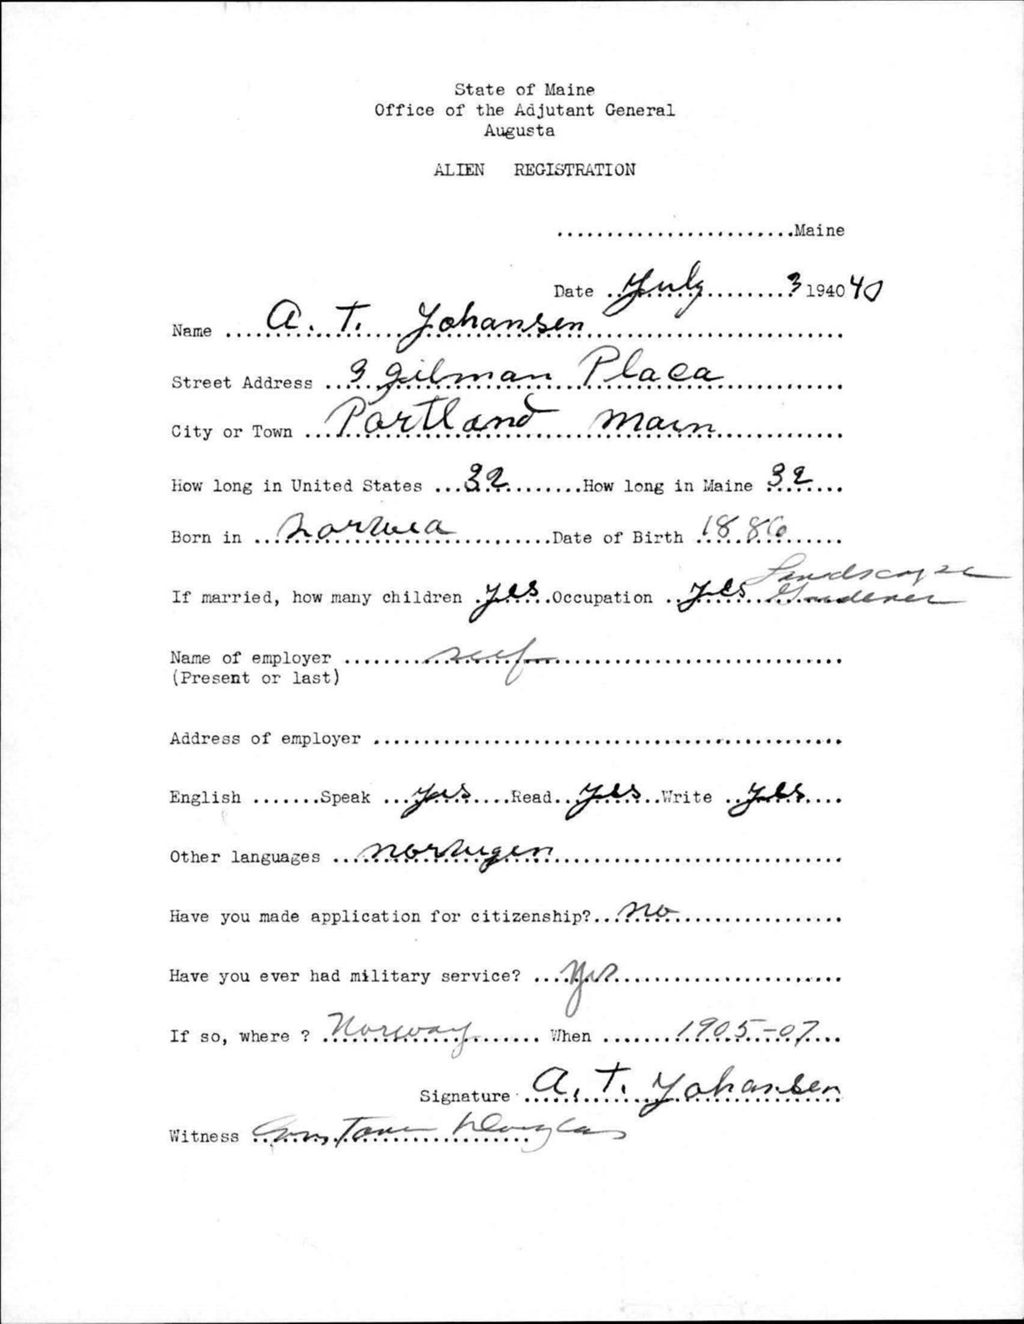 State of Maine
Office of the Adjutant General
Augusta
ALIEN REGISTRATION
........................Maine
Date ..July.........3 1940 40
Name ....A. T. Johansen..........................
Street Address ..9 Gilman Placa............
City or Town ...Portland Marn.............
How long in United States ...32........How long in Maine .32...
Born in ..Norwea..........Date of Birth .1886......
If married, how many children .yes..Occupation ..yes Landscape
Gardener
Name of employer ........self.............................
(Present or last)
Address of employer ...............................................
English .......Speak ...yes....Read..yes..Write ..yes....
Other languages ...norwugen.............................
Have you made application for citizenship?..no.................
Have you ever had military service? ....yes.......................
If so, where ? .Norway....... When ........1905-07...
Signature .A. T. Johansen
Witness .Constance Douglas